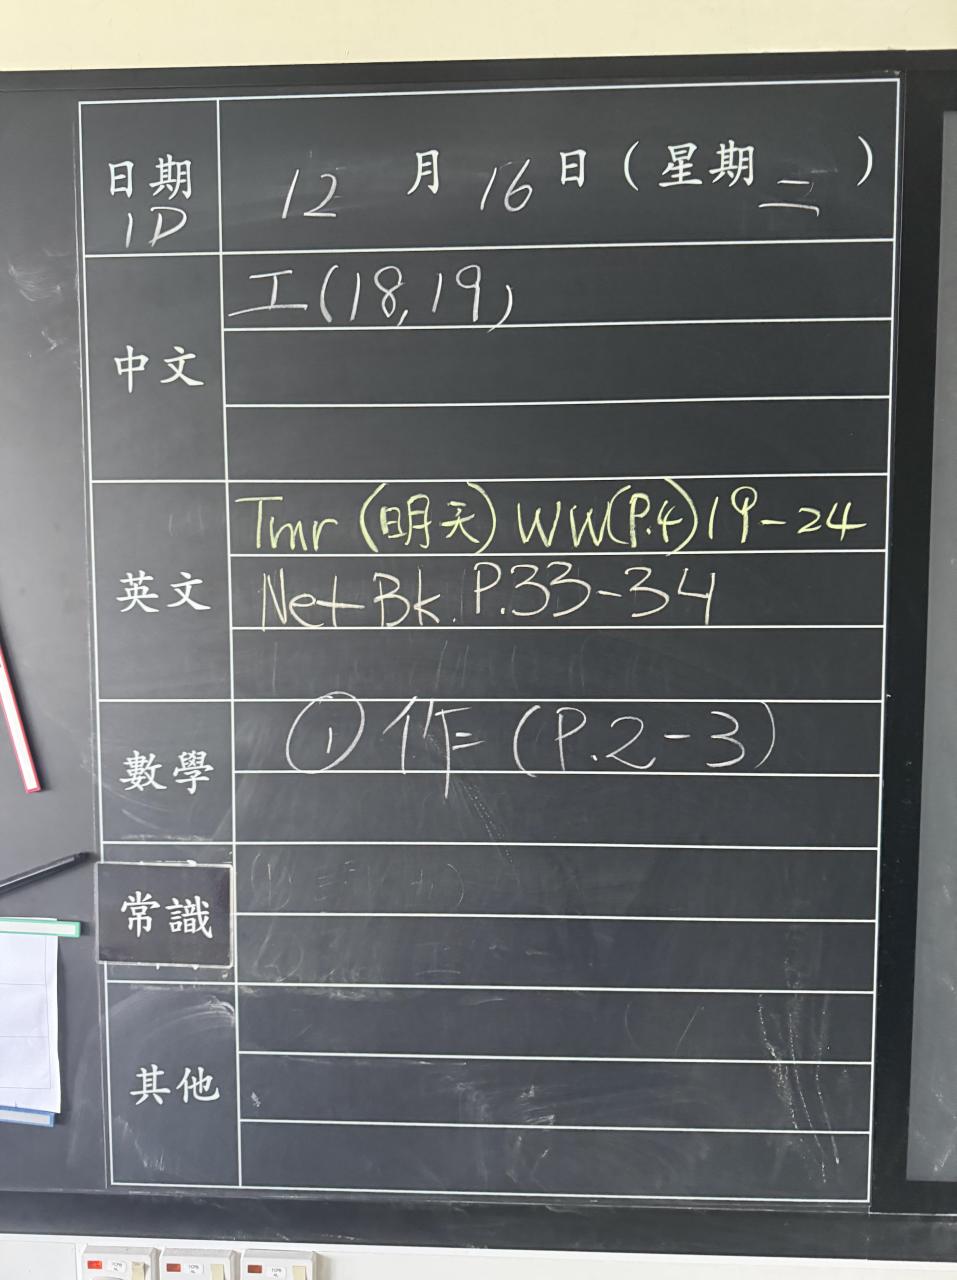 日期 12 月 16 日 ( 星期 二 )
1D
中文 工(18,19)
英文 Tmr (明天) WW(P.4) 19-24
Net Bk. P.33-34
數學 ① 作 (P.2-3)
常識
其他